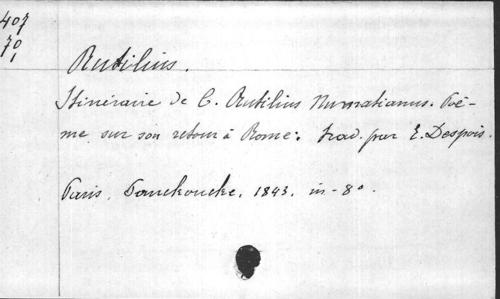 407
70
1
Rutilius.
Itinéraire de C. Rutilius Numatianus. Poë-
me sur son retour à Rome: trad. par E. Despois.
Paris, Panckoucke, 1843. in-8o.